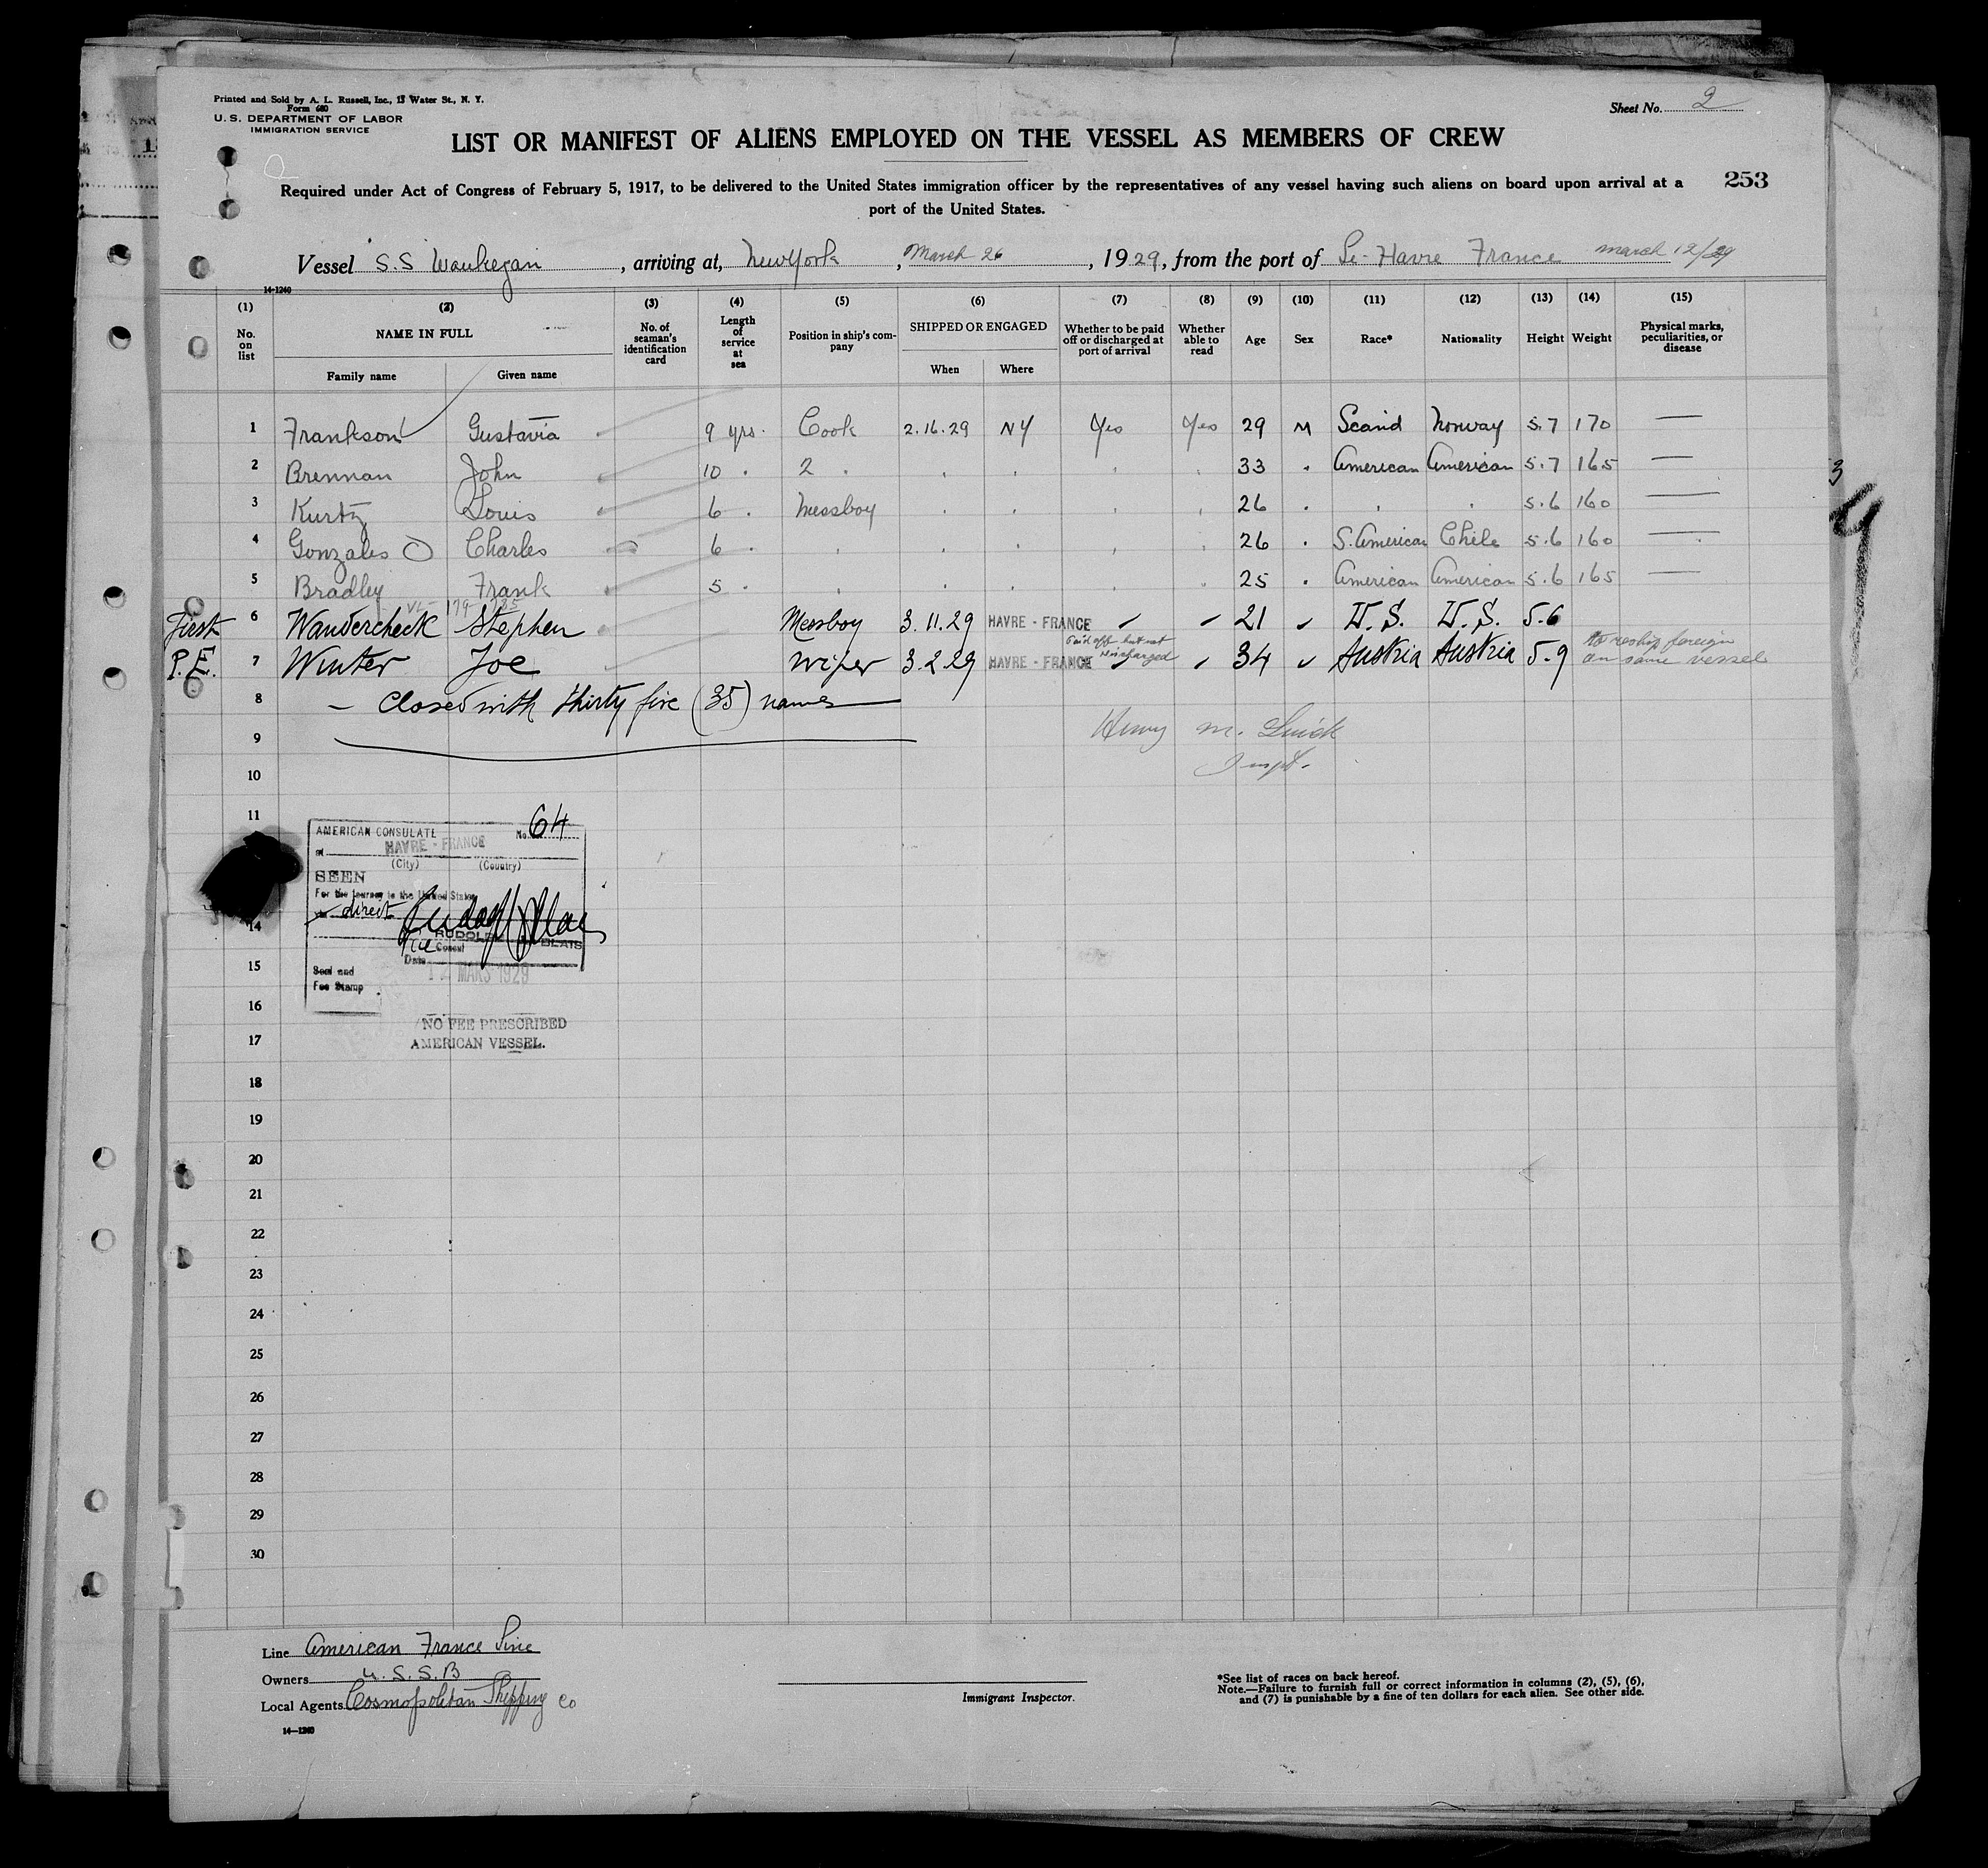 Printed and Sold by A. L. Russell, Inc., 15 Water St., N. Y.
Form 680
U. S. DEPARTMENT OF LABOR
IMMIGRATION SERVICE
Sheet No. 2
LIST OR MANIFEST OF ALIENS EMPLOYED ON THE VESSEL AS MEMBERS OF CREW
Required under Act of Congress of February 5, 1917, to be delivered to the United States immigration officer by the representatives of any vessel having such aliens on board upon arrival at a
port of the United States.
253
Vessel S.S Waukegan, arriving at, New York, March 26, 1929, from the port of Le-Havre France march 12/29
14-1240
(1) (2) (3) (4) (5) (6) (7) (8) (9) (10) (11) (12) (13) (14) (15)
No. on list NAME IN FULL No. of seaman's identification card Length of service at sea Position in ship's company SHIPPED OR ENGAGED Whether to be paid off or discharged at port of arrival Whether able to read Age Sex Race* Nationality Height Weight Physical marks, peculiarities, or disease
Family name Given name When Where
1 Frankson Gustavia 9 yrs. Cook 2.16.29 NY Yes Yes 29 M Scand Norway 5.7 170 —
2 Brennan John 10 . 2 . . . . . 33 . American American 5.7 165 —
3 Kurtz Louis 6 . Messboy . . . . 26 . . . 5.6 160 —
4 Gonzales Charles 6 . . . . . . 26 . S. American Chile 5.6 160 —
5 Bradley Frank 5 . . . . . . 25 . American American 5.6 165 —
VL- 179-785
First 6 Wandercheck Stephen Messboy 3.11.29 HAVRE - FRANCE ✓ ✓ 21 ✓ U.S. U.S. 5.6
Paid off but not discharged
to reship foreign
on same vessel
P.E. 7 Winter Joe Wiper 3.2.29 HAVRE - FRANCE ✓ ✓ 34 ✓ Austria Austria 5.9
8 — Closed with thirty five (35) names
9
Henry M.
Inspt.
10
11
14
15
16
17
18
19
20
21
22
23
24
25
26
27
28
29
30
AMERICAN CONSULATE No. 64
at HAVRE - FRANCE
(City) (Country)
SEEN
For the journey to the United States
via direct
RUDOLF BLAIS
Vice Consul
Date
MARS 1929
Seal and
Fee Stamp
NO FEE PRESCRIBED
AMERICAN VESSEL.
Line American France Line
Owners U.S.S.B
Local Agents Cosmopolitan Shipping Co
14-1240
Immigrant Inspector.
*See list of races on back hereof.
Note.—Failure to furnish full or correct information in columns (2), (5), (6),
and (7) is punishable by a fine of ten dollars for each alien. See other side.